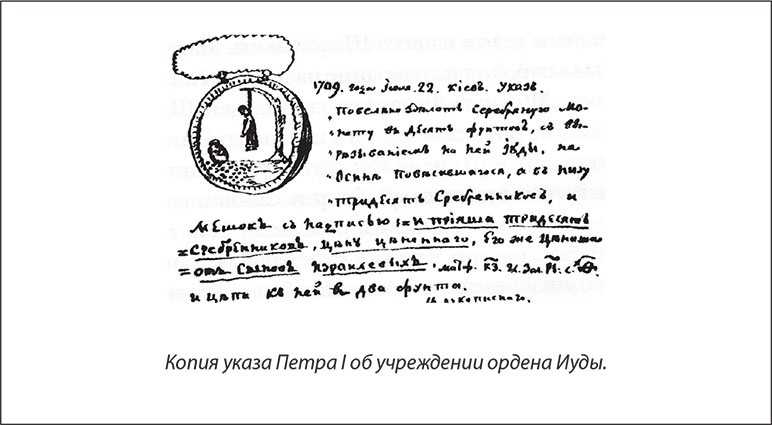 1709. года Iюля. 22. Кiевъ. Указъ.
Повелѣно Дѣлать Серебряную Мо-
нету въ десять фунтовъ, съ вы-
рѣзыванiемъ на ней Iуды, на
Осинѣ повѣсившагося, а въ низу
тридесять Сребренниковъ, и
Мѣшокъ съ надписью := и прiяша тридесять
= Сребренниковъ, Цѣну цѣненнаго, Его же Цѣниша
= отъ Сыновъ Израилевыхъ, матф. к҃з.
и цѣпь къ ней въ два фунта.
Копия указа Петра I об учреждении ордена Иуды.